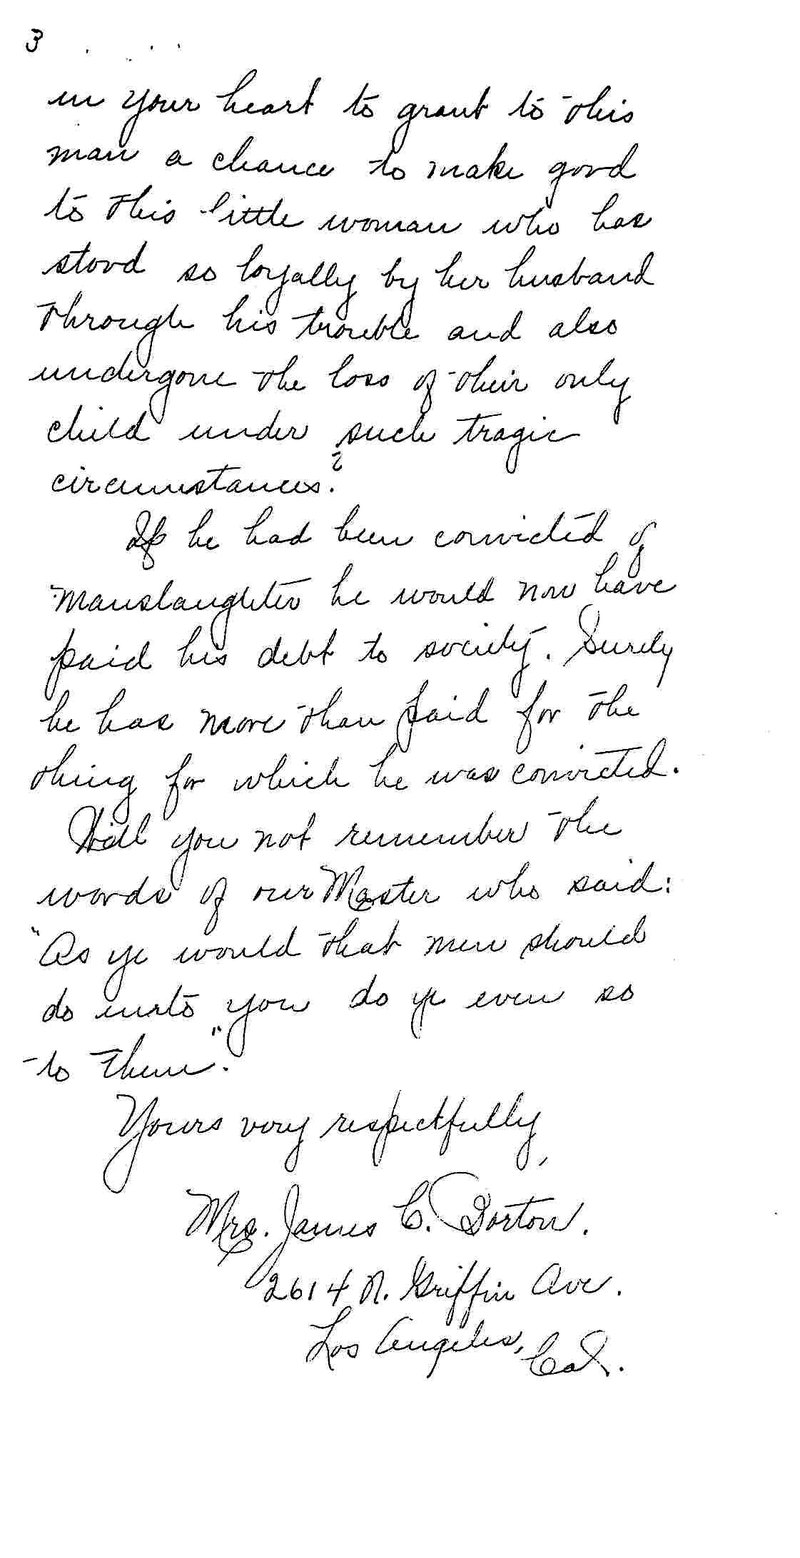 3
in your heart to grant to this
man a chance to make good
to this little woman who has
stood so loyally by her husband
through his trouble and also
undergone the loss of their only
child under such tragic
circumstances?
If he had been convicted of
manslaughter he would now have
paid his debt to society. Surely
he has more than paid for the
thing for which he was convicted.
Will you not remember the
words of our Master who said:
"As ye would that men should
do unto you do ye even so
to them".
Yours very respectfully,
Mrs. James C.
2614 N. Griffin Ave.
Los Angeles, Cal.